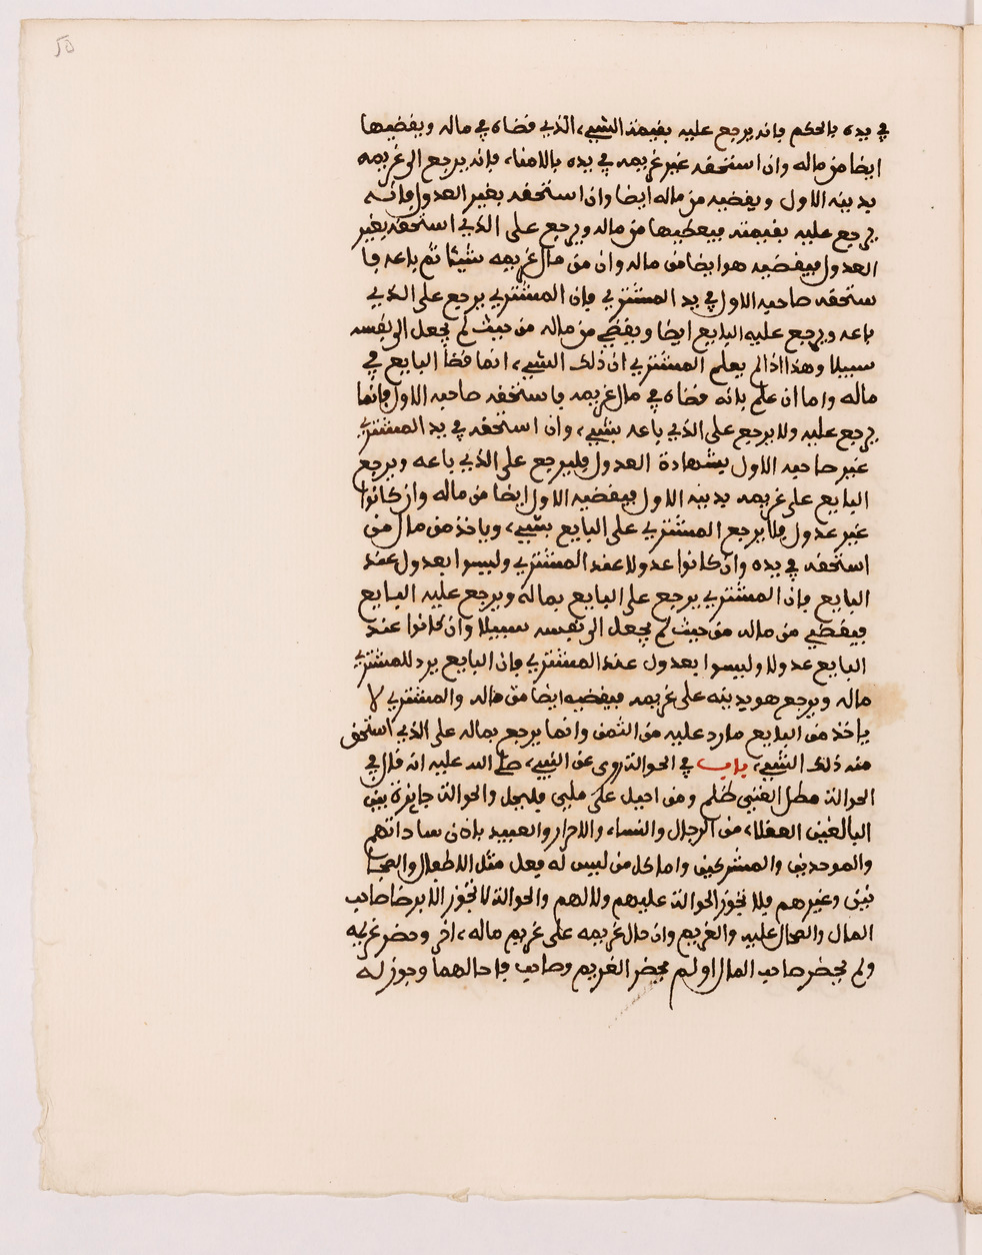 في يده بالحكم فإنه يرجع عليه بقيمة الشيء الذي قضاه في ماله ويقضيها
ايضا من ماله وان استحقه غير غريمه في يده بالامناء فإنه يرجع الى غريمه
بدينه الاول ويقضيه من ماله ايضا وان استحقه بغير العدول فإنه
يرجع عليه بقيمته فيعطيها من ماله ويرجع على الذي استحقه بغير
العدول فيقضيه هو ايضا من ماله وان من مال غريمه شيئا ثم باعه فا
ستحقه صاحبه الاول في يد المشتري فإن المشتري يرجع على الذي
باعه ويرجع عليه البايع ايضا ويقضي من ماله من حيث لم يجعل الى نفسه
سبيلا وهذا اذا لم يعلم المشتري ان ذلك الشيء انما قضا البايع في
ماله واما ان علم بانه قضاه في مال غريمه فاستحقه صاحبه الاول فإنما
يرجع عليه ولا يرجع على الذي باعه بشيء وان استحقه في يد المشتري
غير صاحبه الاول بشهادة العدول فليرجع على الذي باعه ويرجع
البايع على غريمه بدينه الاول فيقضيه الاول ايضا من ماله وان كانوا
غير عدول فلا يرجع المشتري على البايع بشيء وياخذ من مال من
استحقه في يده وان كانوا عدولا عند المشتري وليسوا بعدول عند
البايع فإن المشتري يرجع على البايع بماله ويرجع عليه البايع
فيقضي من ماله من حيث لم يجعل الى نفسه سبيلا وان كانوا عند
البايع عدولا وليسوا بعدول عند المشتري فإن البايع يرد للمشتري
ماله ويرجع هو بدينه على غريمه فيقضيه ايضا من ماله والمشتري لا
ياخذ من البايع ما رد عليه من الثمن وانما يرجع بماله على الذي استحق
منه ذلك الشيء باب في الحوالة روي عن النبيء صلى الله عليه انه قال في
الحوالة مطل الغني ظلم ومن احيل على ملي فليحل والحوالة جايزة بين
البالغين العقلاء من الرجال والنساء والاحرار والعبيد باذن ساداتهم
والموحدين والمشركين واما كل من ليس له فعل مثل الاطفال والمجا
نين وغيرهم فلا تجوز الحوالة عليهم ولا لهم والحوالة لا تجوز الا برضا صاحب
المال والمحال عليه والغريم وان حال غريمه على غريم ماله اخر وحضر غريمه
ولم يحضر صاحب المال او لم يحضر الغريم وصاحب فاحالهما وجوز له